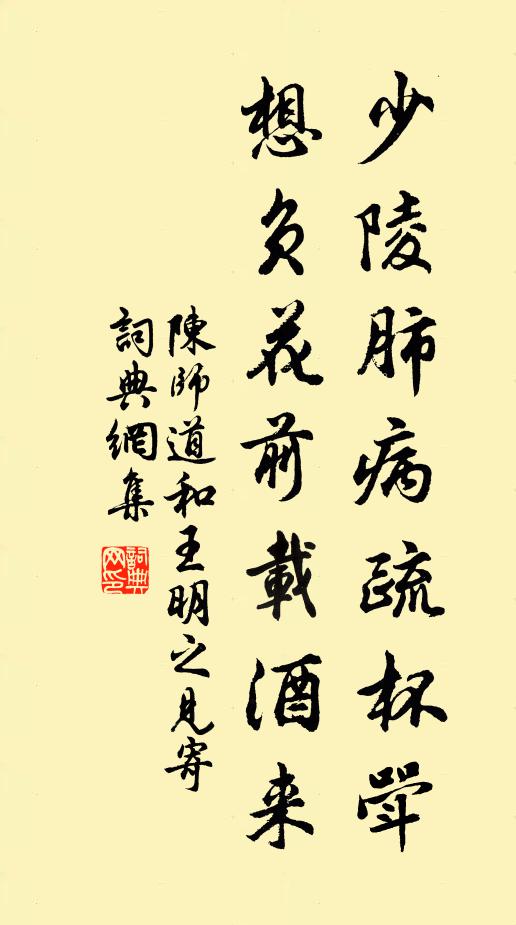 少陵肺病疏杯斝
想負花前載酒來
陳師道和王明之見寄
詞典網集
詞典網印